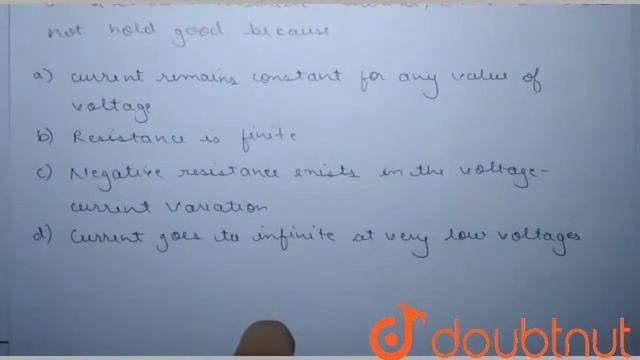 not hold good because
a) current remains constant for any value of
voltage
b) Resistance is finite
c) Negative resistance exists in the voltage-
current variation
d) Current goes to infinite at very low voltages
doubtnut